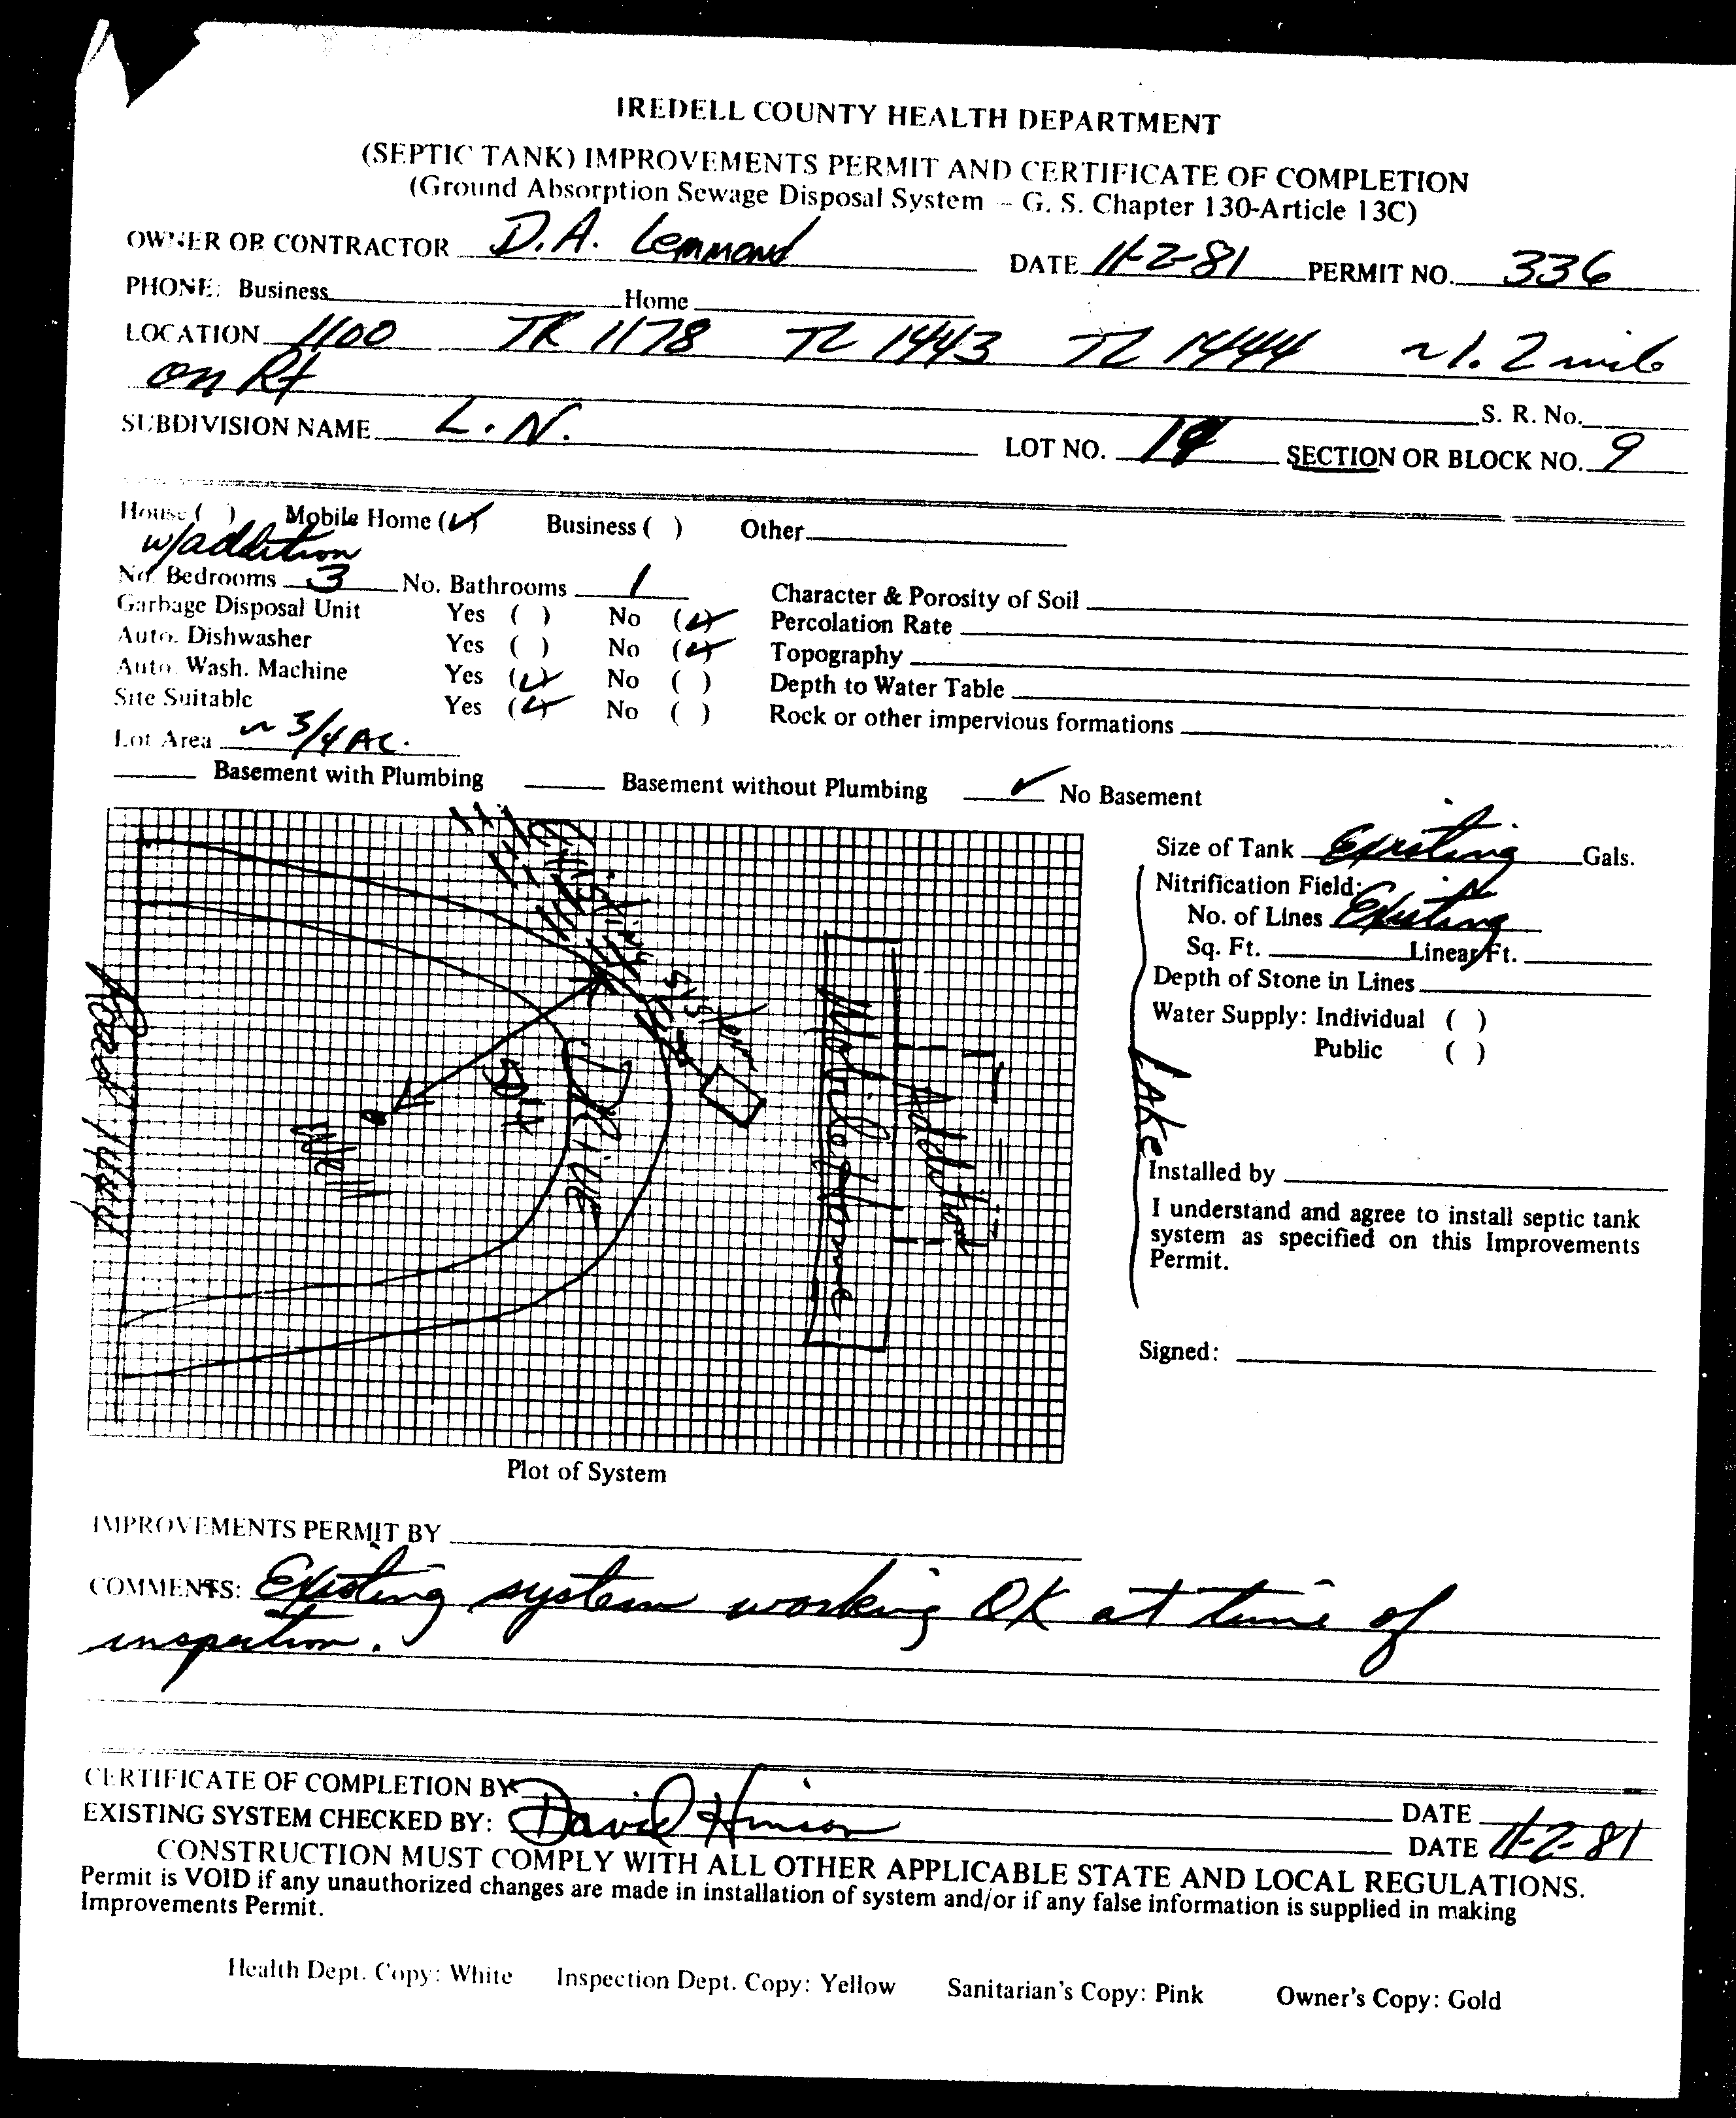 IREDELL COUNTY HEALTH DEPARTMENT
(SEPTIC TANK) IMPROVEMENTS PERMIT AND CERTIFICATE OF COMPLETION
(Ground Absorption Sewage Disposal System – G. S. Chapter 130-Article 13C)
OWNER OR CONTRACTOR D.A. Lemmond DATE 11-2-81 PERMIT NO. 336
PHONE: Business Home
LOCATION 1100 TR 1178 TL 1443 TL 1444 ~1.2 mile
on Rt S. R. No.
SUBDIVISION NAME L.N. LOT NO. SECTION OR BLOCK NO. 9
House ( ) Mobile Home (✓) Business ( ) Other
w/addition
No. Bedrooms 3 No. Bathrooms 1 Character & Porosity of Soil
Garbage Disposal Unit Yes ( ) No (✓) Percolation Rate
Auto. Dishwasher Yes ( ) No (✓) Topography
Auto. Wash. Machine Yes (✓) No ( ) Depth to Water Table
Site Suitable Yes (✓) No ( ) Rock or other impervious formations
Lot Area ~ 3/4 AC.
Basement with Plumbing Basement without Plumbing ✓ No Basement
Size of Tank Existing Gals.
Nitrification Field:
No. of Lines Existing
Sq. Ft. Linear Ft.
Depth of Stone in Lines
Water Supply: Individual ( )
Public ( )
Existing System
Mobile Home
Addition
DRIVE
Well
LAKE
Installed by
I understand and agree to install septic tank
system as specified on this Improvements
Permit.
Signed:
Plot of System
IMPROVEMENTS PERMIT BY
COMMENTS: Existing system working OK at time of
inspection.
CERTIFICATE OF COMPLETION BY DATE
EXISTING SYSTEM CHECKED BY: David Hinson DATE 11-2-81
CONSTRUCTION MUST COMPLY WITH ALL OTHER APPLICABLE STATE AND LOCAL REGULATIONS.
Permit is VOID if any unauthorized changes are made in installation of system and/or if any false information is supplied in making
Improvements Permit.
Health Dept. Copy: White Inspection Dept. Copy: Yellow Sanitarian's Copy: Pink Owner's Copy: Gold